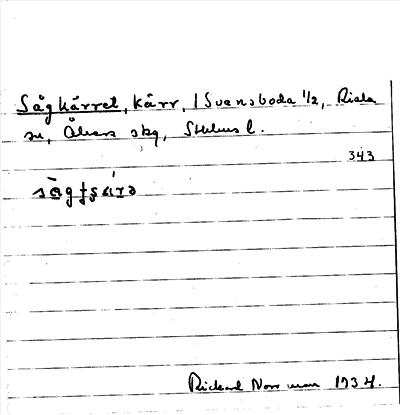 Sågkärret, kärr, i Svensboda 1/2, Riala
sn, Åkers skg, Sthlms l.
343
Rickard Norrman 1934.